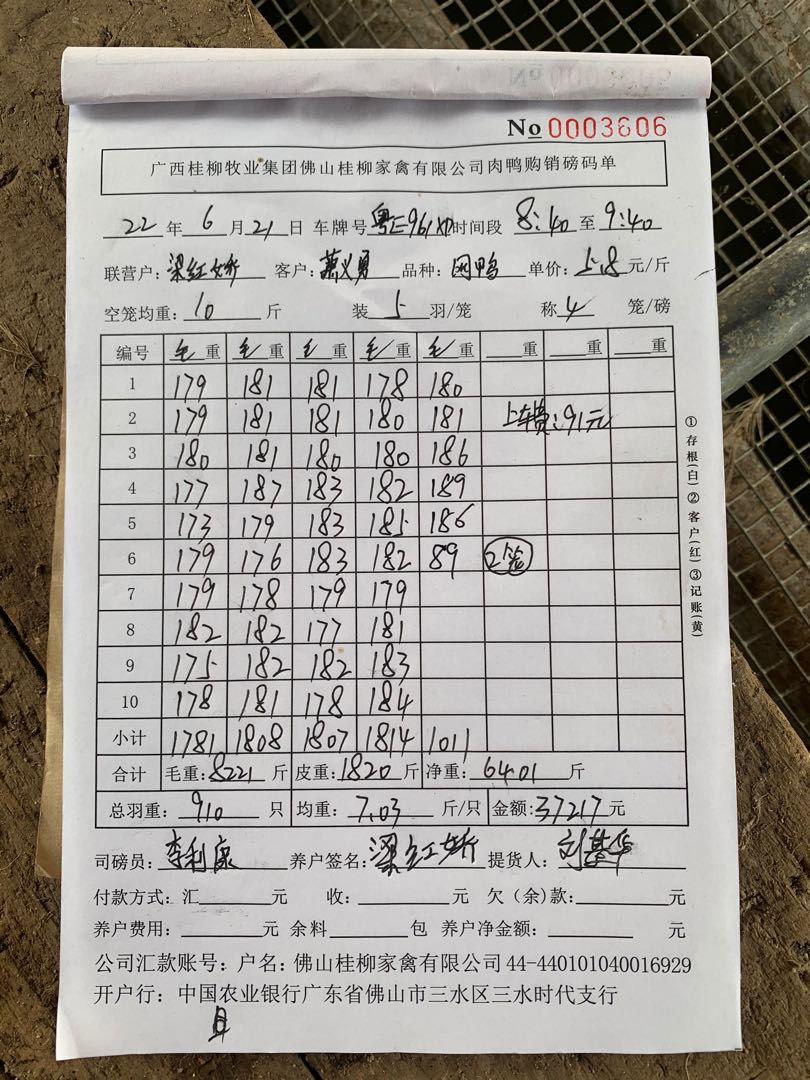 No 0003606
广西桂柳牧业集团佛山桂柳家禽有限公司肉鸭购销磅码单
22 年 6 月 21 日 车牌号 粤E961 时间段 8:40 至 9:40
联营户: 梁红娇 客户: 萧义勇 品种: 网鸭 单价: 5.8 元/斤
空笼均重: 10 斤 装 5 羽/笼 称 4 笼/磅
编号 毛 重 毛 重 毛 重 毛 重 毛 重 重 重 重
1 179 181 181 178 180
2 179 181 181 180 181 上车费:91元
3 180 181 180 180 186
4 177 187 183 182 189
5 173 179 183 185 186
6 179 176 183 182 89 2笼
7 179 178 179 179
8 182 182 177 181
9 175 182 182 183
10 178 181 178 184
小计 1781 1808 1807 1814 1011
合计 毛重: 8221 斤 皮重: 1820 斤 净重: 6401 斤
总羽重: 910 只 均重: 7.03 斤/只 金额: 37217 元
司磅员: 李利康 养户签名: 梁红娇 提货人: 刘华
付款方式: 汇 元 收: 元 欠(余)款: 元
养户费用: 元 余料 包 养户净金额: 元
公司汇款账号: 户名: 佛山桂柳家禽有限公司 44-440101040016929
开户行: 中国农业银行广东省佛山市三水区三水时代支行
①存根(白)②客户(红)③记账(黄)